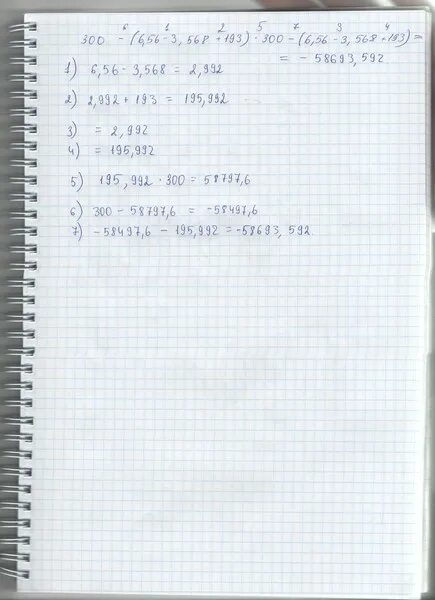 6 1 2 5 7 3 4
300 - (6,56 - 3,568 + 193) · 300 - (6,56 - 3,568 + 193) =
= - 58693,592
1) 6,56 - 3,568 = 2,992
2) 2,992 + 193 = 195,992
3) = 2,992
4) = 195,992
5) 195,992 · 300 = 58797,6
6) 300 - 58797,6 = -58497,6
7) -58497,6 - 195,992 = -58693,592